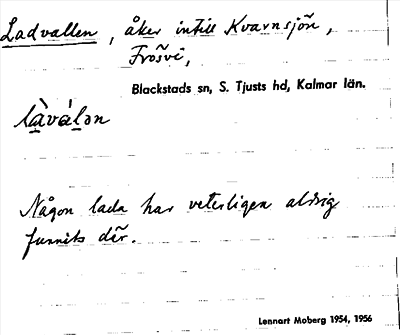 Ladvallen, åker intill Kvarnsjön,
Frösvi,
Blackstads sn, S. Tjusts hd, Kalmar län.
làválən
Någon lada har veterligen aldrig
funnits där.
Lennart Moberg 1954, 1956